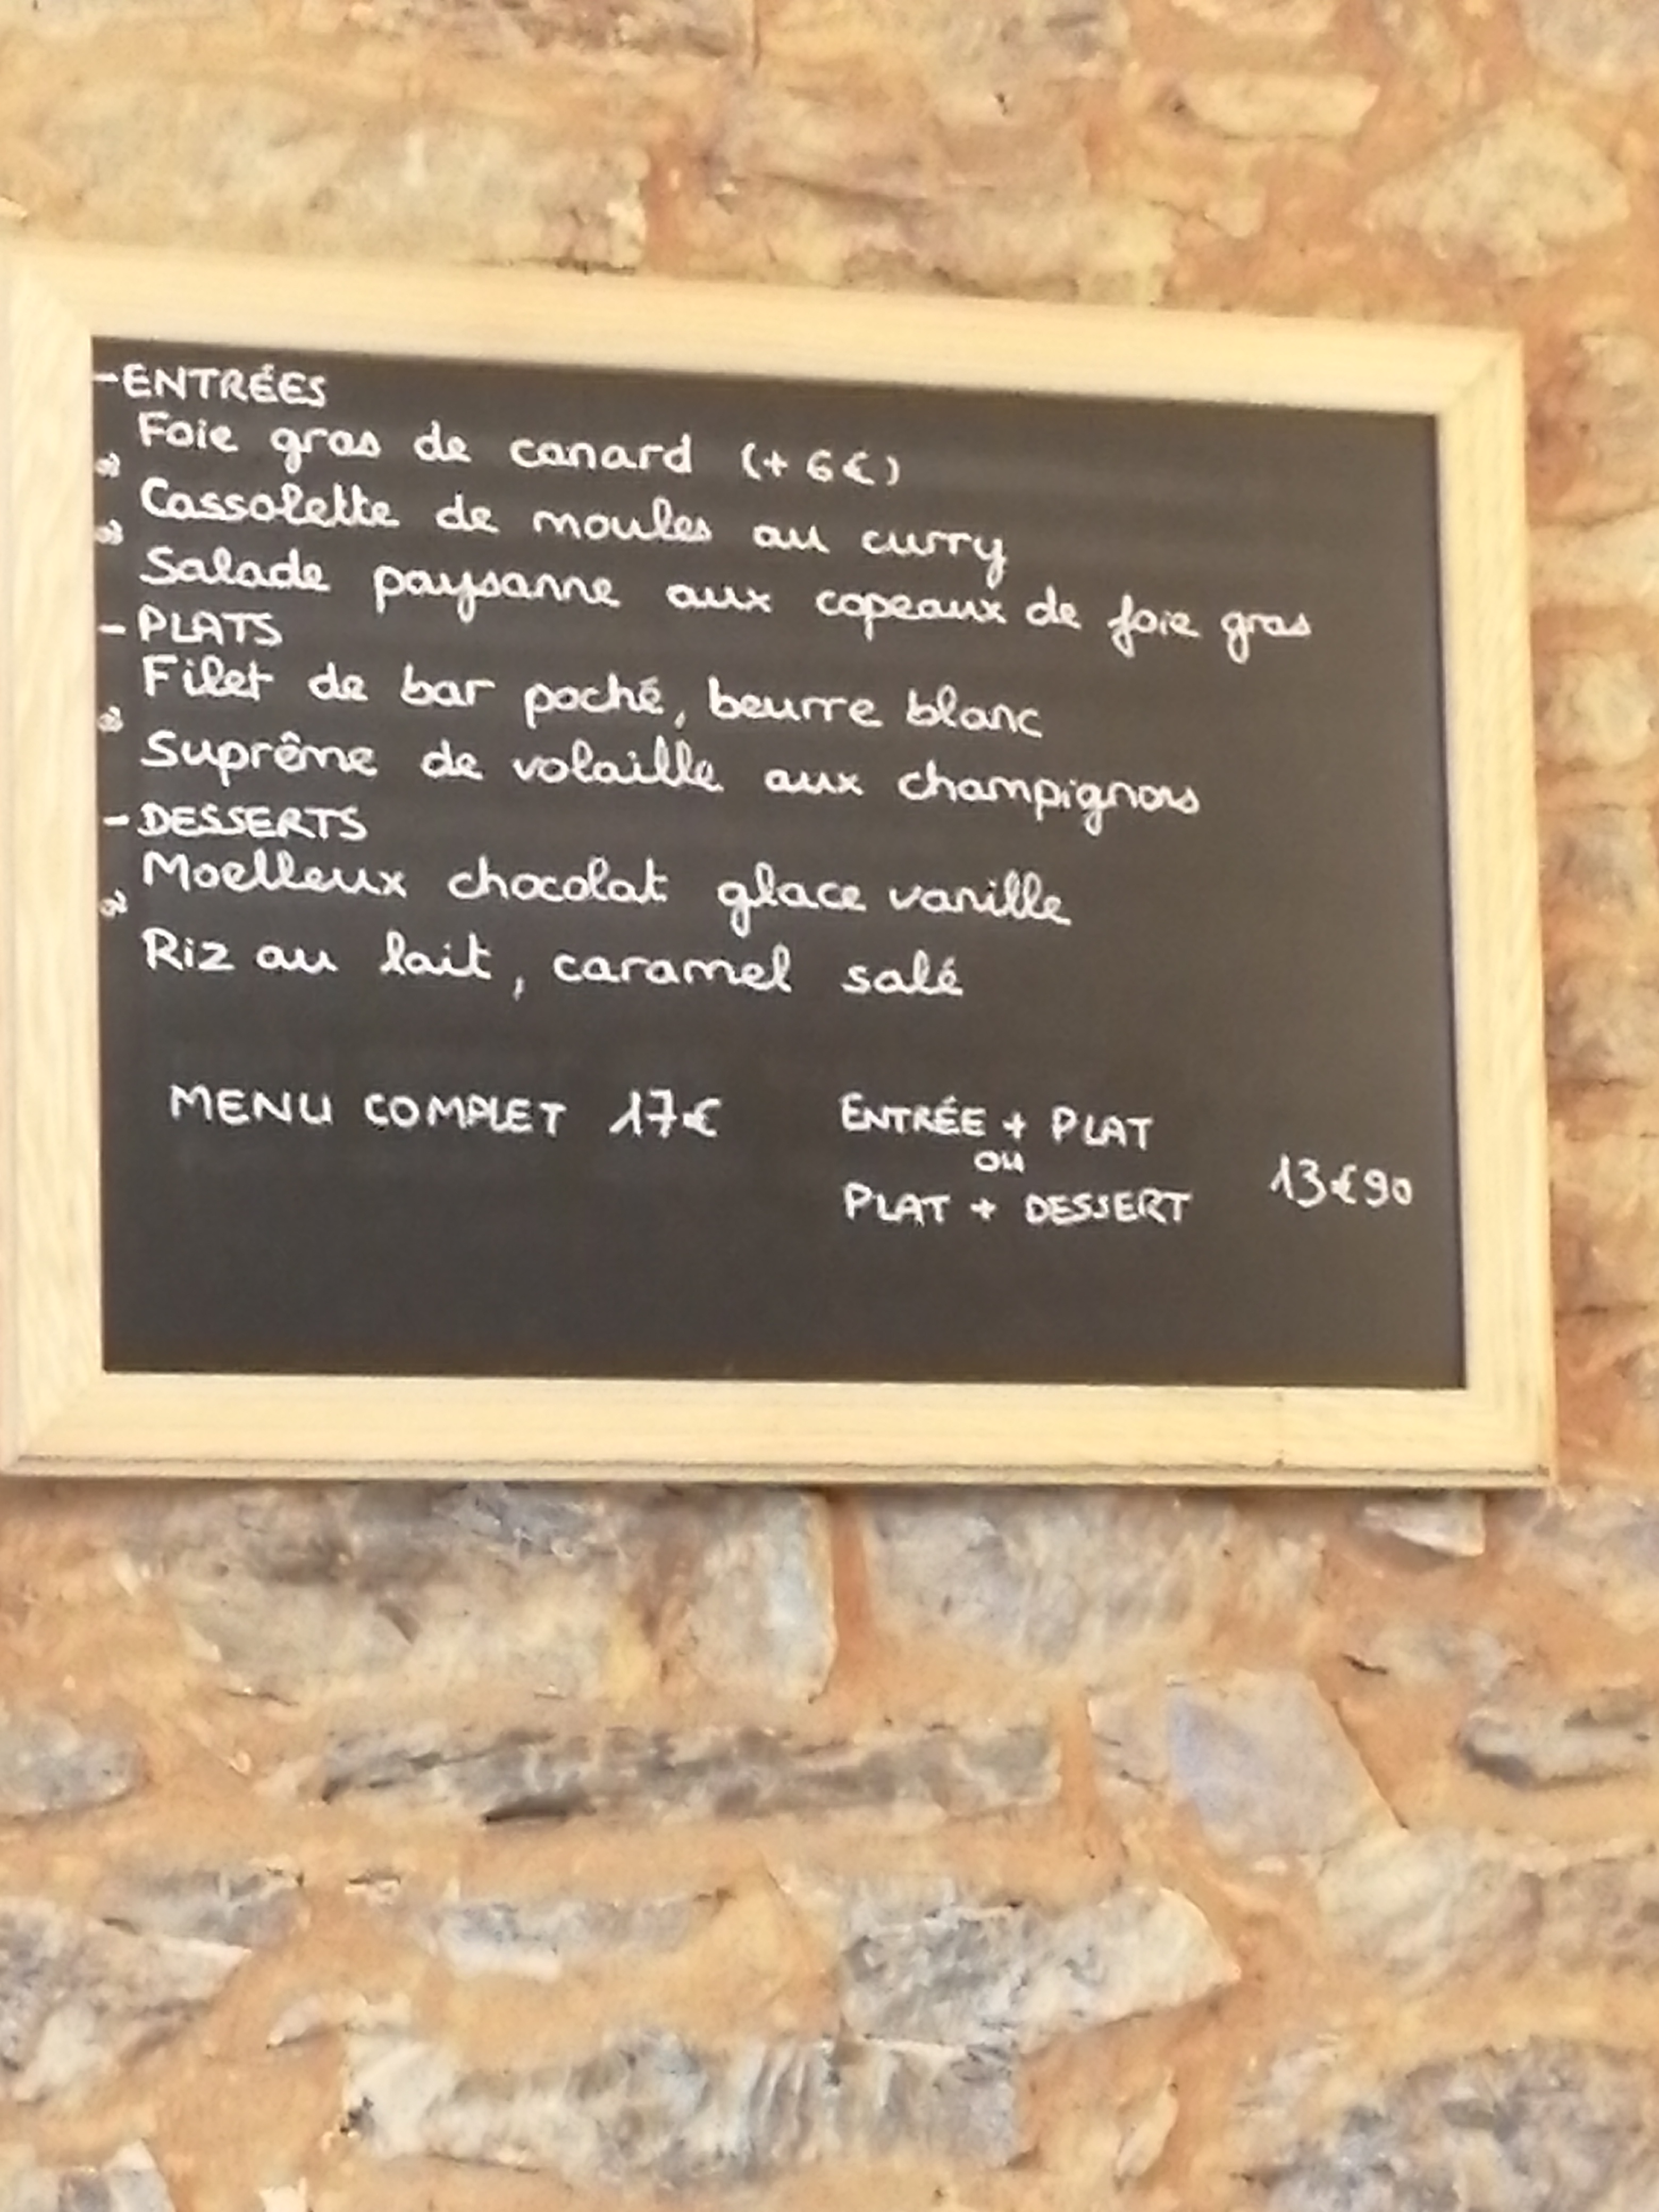 - ENTRÉES
Foie gras de canard (+ 6€)
ou
Cassolette de moules au curry
ou
Salade paysanne aux copeaux de foie gras
- PLATS
Filet de bar poché, beurre blanc
ou
Suprême de volaille aux champignons
- DESSERTS
Moelleux chocolat glace vanille
ou
Riz au lait, caramel salé
MENU COMPLET 17€
ENTRÉE + PLAT
ou
PLAT + DESSERT
13€90